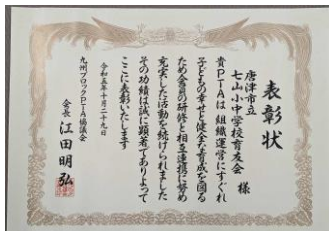 表彰状
唐津市立
七山小中学校育友会 様
貴PTAは 組織運営にすぐれ
子どもの幸せと健全な育成を図る
ため会員の研修と相互連携に努め
充実した活動を続けられました
その功績は誠に顕著でありよって
ここに表彰いたします
令和五年十月二十九日
九州ブロックPTA協議会
会長 江田明弘